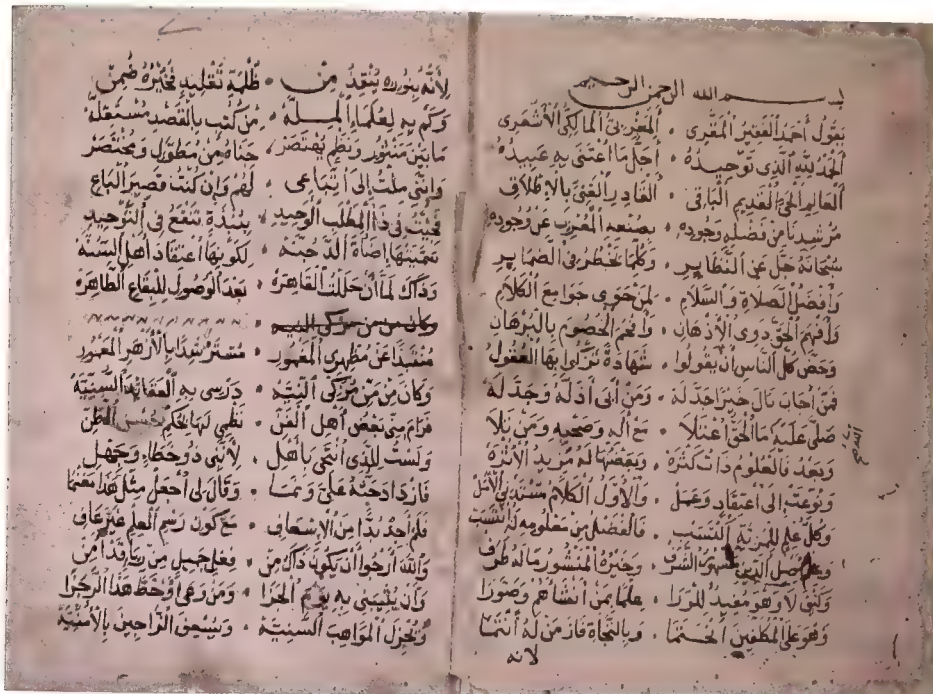 بسم الله الرحمن الرحيم
يقول أحمد الفقير المقري . المغربي المالكي الأشعري
الحمد لله الذي توحيده . أجل ما اعتنى به عبيده
العالم الحي القديم الباقي . القادر الغني بالإطلاق
مرشدنا من فضله وجوده . بصنعه المعرب عن وجوده
سبحانه جل عن النظاير . وكلما يخطر في الضماير
وأفضل الصلاة والسلام . لمن حوى جوامع الكلام
وأفهم الحق ذوي الأذهان . وأفحم الخصوم بالبرهان
وحض كل الناس أن يقولوا . شهادة تزكوا بها العقول
فمن أجاب نال خيرا جذله . ومن أبى أذله وجدله
صلى عليه ما الحق اعتلا . مع آله وصحبه ومن تلا
وبعد فالعلوم ذات كثرة . وبعضها له مزيد الأثرة
ونوعت إلى اعتقاد وعمل . والأول الكلام مسند الأمل
وكل علم للمزية اكتسب . فالفضل من معلومه له انتسب
وعلم أصل الدين مشهور الشرف . وخيره المنشور ما له طرف
وهو مفيد للورا . علما بمن أنشأهم وصورا
وهو على المكلفين . وبالنجاة فاز من له انتما
لانه
لأنه بنوره ينقذ من . ظلمة تقليد فخيره ضمن
وكم به لعلماء الملة . من كتب بالقصد مستقلة
ما بين منثور ونظم يقتصر . جناه من مطول ومختصر
وانني ملت إلى اتباعي . لهم وإن كنت قصير الباع
فجئت في ذا المطلب الوحيد . بنبذة تنفع في التوحيد
سميتها إضاءة الدجنة . لكونها اعتقاد أهل السنه
وذاك لما أن حللت القاهرة . بعد الوصول للبقاع الطاهرة
وكان من من مزكى النيه
منتبذا عن مظهري المغمور . مسترشدا بالأزهر المعمور
وكان من من مزكى النيه . درسي به العقائد السنيه
فرام مني بعض أهل الفن . نظمي لها بحكم حسن الظن
ولست للذي انتمى بأهل . لأنني ذو خطاء وجهل
فازداد حثه علي ونما . وقال لي اجعل مثل هذا مغنما
فلم أجد بدا من الإسعاف . مع كون رسم العلم غير عاف
والله أرجوا أن يكون ذاك من . فعل جميل من رياء قد أمن
وأن يثيبني به يوم الجزا . ومن وعى أو خط هذا الرجزا
ويجزل المواهب السنيه . ويسعف الراجين بالأمنيه